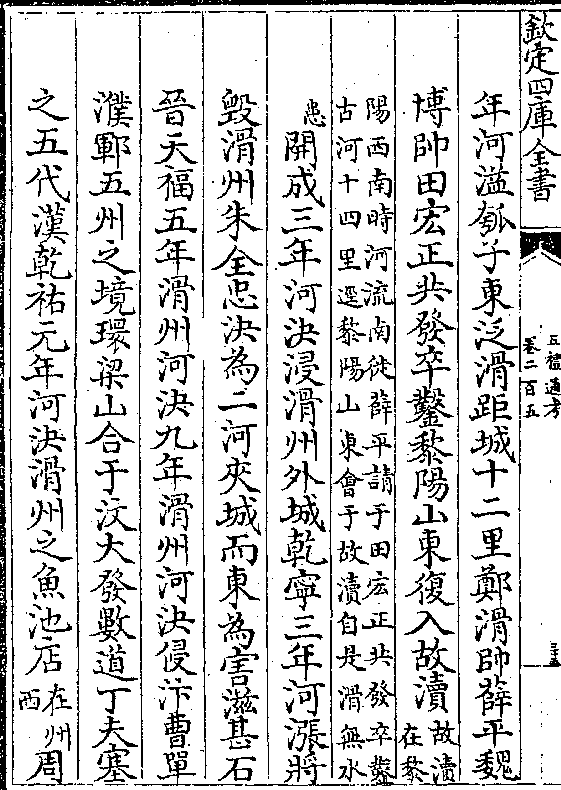 欽定四庫全書
五禮通考
卷二百五
年河溢瓠子東泛滑距城十二里鄭滑帥薛平魏
博帥田宏正共發卒鑿黎陽山東復入故瀆故瀆
在黎
陽西南時河流南徙薛平請于田宏正共發卒鑿
古河十四里逕黎陽山東會于故瀆自是滑無水
患開成三年河決浸滑州外城乾寧三年河漲將
毀滑州朱全忠決為二河夾城而東為害滋甚石
晉天福五年滑州河決九年滑州河決侵汴曹單
濮鄆五州之境環梁山合于汶大發數道丁夫塞
之五代漢乾祐元年河決滑州之魚池店在州
西周